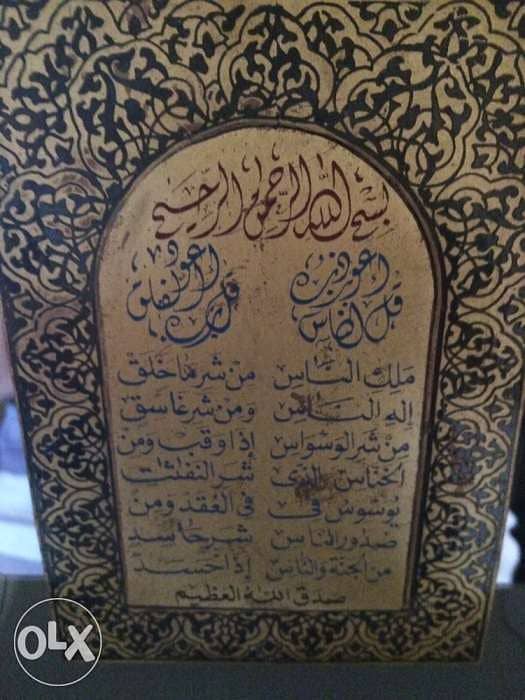 بسم الله الرحمن الرحيم
قل اعوذ برب الناس
ملك الناس
إله الناس
من شر الوسواس
الخناس الذى
يوسوس فى
صدور الناس
من الجنة والناس
قل اعوذ برب الفلق
من شر ما خلق
ومن شر غاسق
إذا وقب ومن
شر النفثت
فى العقد ومن
شر حاسد
إذا حسد
صدق الله العظيم
OLX